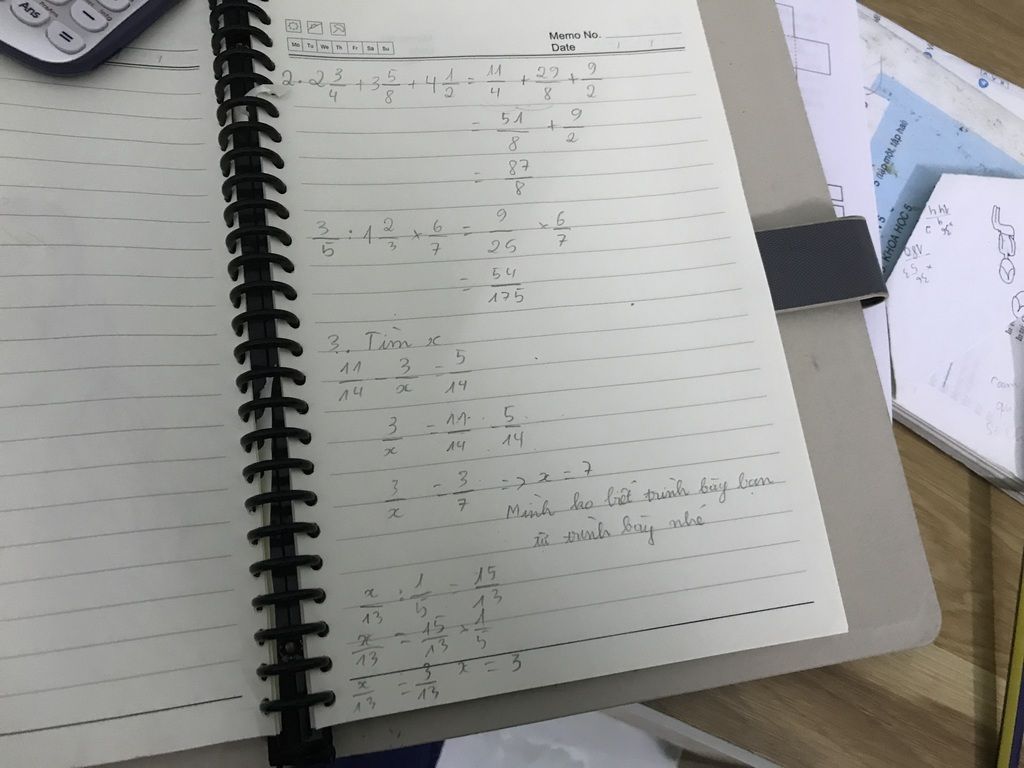 Ans
=
Memo No.
Mo Tu We Th Fr Sa Su
Date / /
2. 2 3/4 + 3 5/8 + 4 1/2 = 11/4 + 29/8 + 9/2
= 51/8 + 9/2
= 87/8
3/5 : 1 2/3 × 6/7 = 9/25 × 6/7
= 54/175
3. Tìm x
11/14 - 3/x = 5/14
3/x = 11/14 - 5/14
3/x = 3/7 => x = 7
Mình ko biết trình bày bạn
tự trình bày nhé
x/13 : 1/5 = 15/13
x/13 = 15/13 × 1/5
x/13 = 3/13 x = 3
KHOA HỌC 5